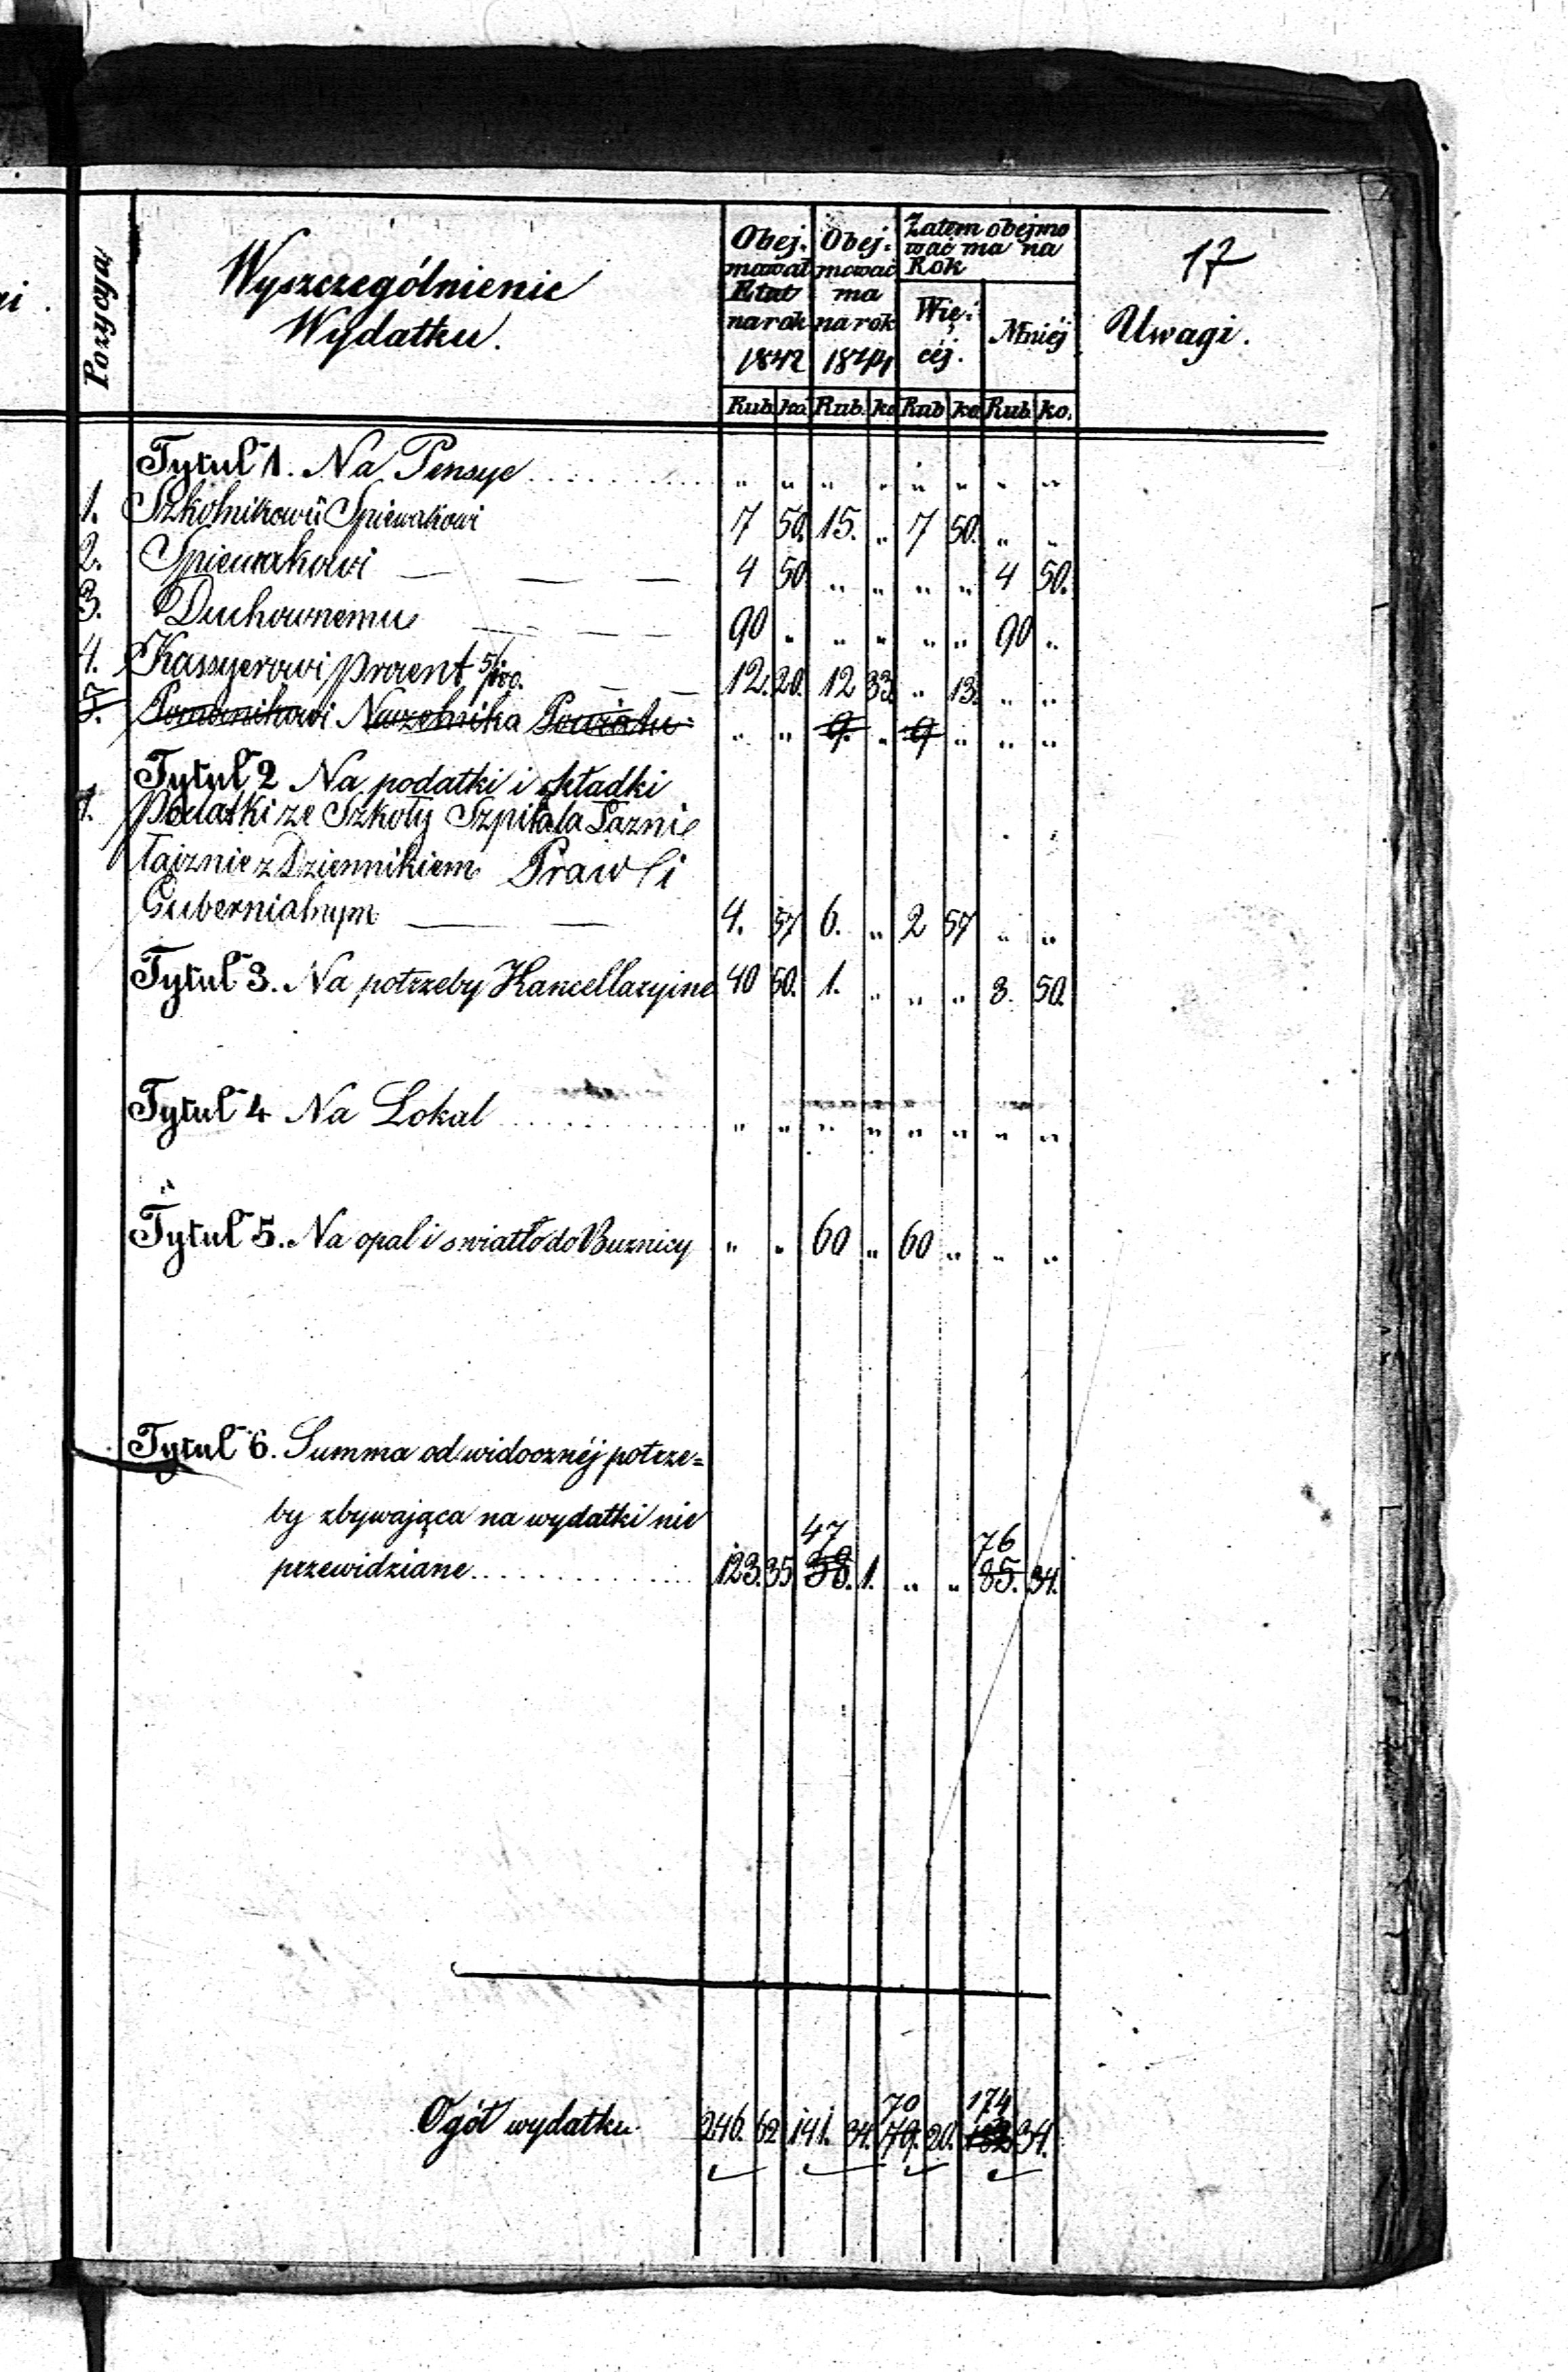 17
Pozycya
Wyszczególnienie
Wydatku.
Obej-
mował
Etat
na rok
1842
Obej-
mować
ma
na rok
1844
Zatem obejmo
wać ma na
Rok
Wię-
céj.
Mniéj
Uwagi.
Rub. ko. Rub. ko Rub ko Rub. ko.
Tytuł 1. Na Pensye . . . . . . . . . . " " " " " " " "
1. Szkolnikowi i Spiewakowi 7 50. 15. " 7 50. " "
2. Spiewakowi — — — 4 50 " " " " 4 50.
3. Duchownemu — — — 90 " " " " " 90 "
4. Kassyerowi procent 5/100. — — 12. 20. 12 33. " 13. " "
5. Pomocnikowi Naczelnika Powiatu " " 9. " 9 " " "
Tytuł 2 Na podatki i składki
1. Podatki ze Szkoły Szpitala Łazni
łącznie z Dziennikiem Praw i
Gubernialnym — — 4. 57 6. " 2 57 " "
Tytuł 3. Na potrzeby Kancellaryine 40 50. 1. " " " 8. 50.
Tytuł 4 Na Lokal . . . . . . . . . . " " " " " " " "
Tytuł 5. Na opal i swiatło do Buznicy " " 60 " 60 " " "
Tytuł 6. Summa od widocznéj potrze=
by zbywająca na wydatki nie
47 76
przewidziane . . . . . . . . . . 123. 35 38. 1. " " 85. 34.
70 174
Ogół wydatku. 246. 62 141. 34. 79. 20. 34.